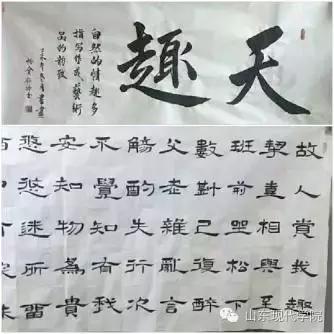 天趣
自然的情趣多
指写作或藝術
品的韵致
故人賞我趣
挈壺相與至
班荊坐松下
數斟已復醉
父老雜亂言
觴酌失行次
不覺知有我
安知物為貴
悠悠迷所留
山东现代学院